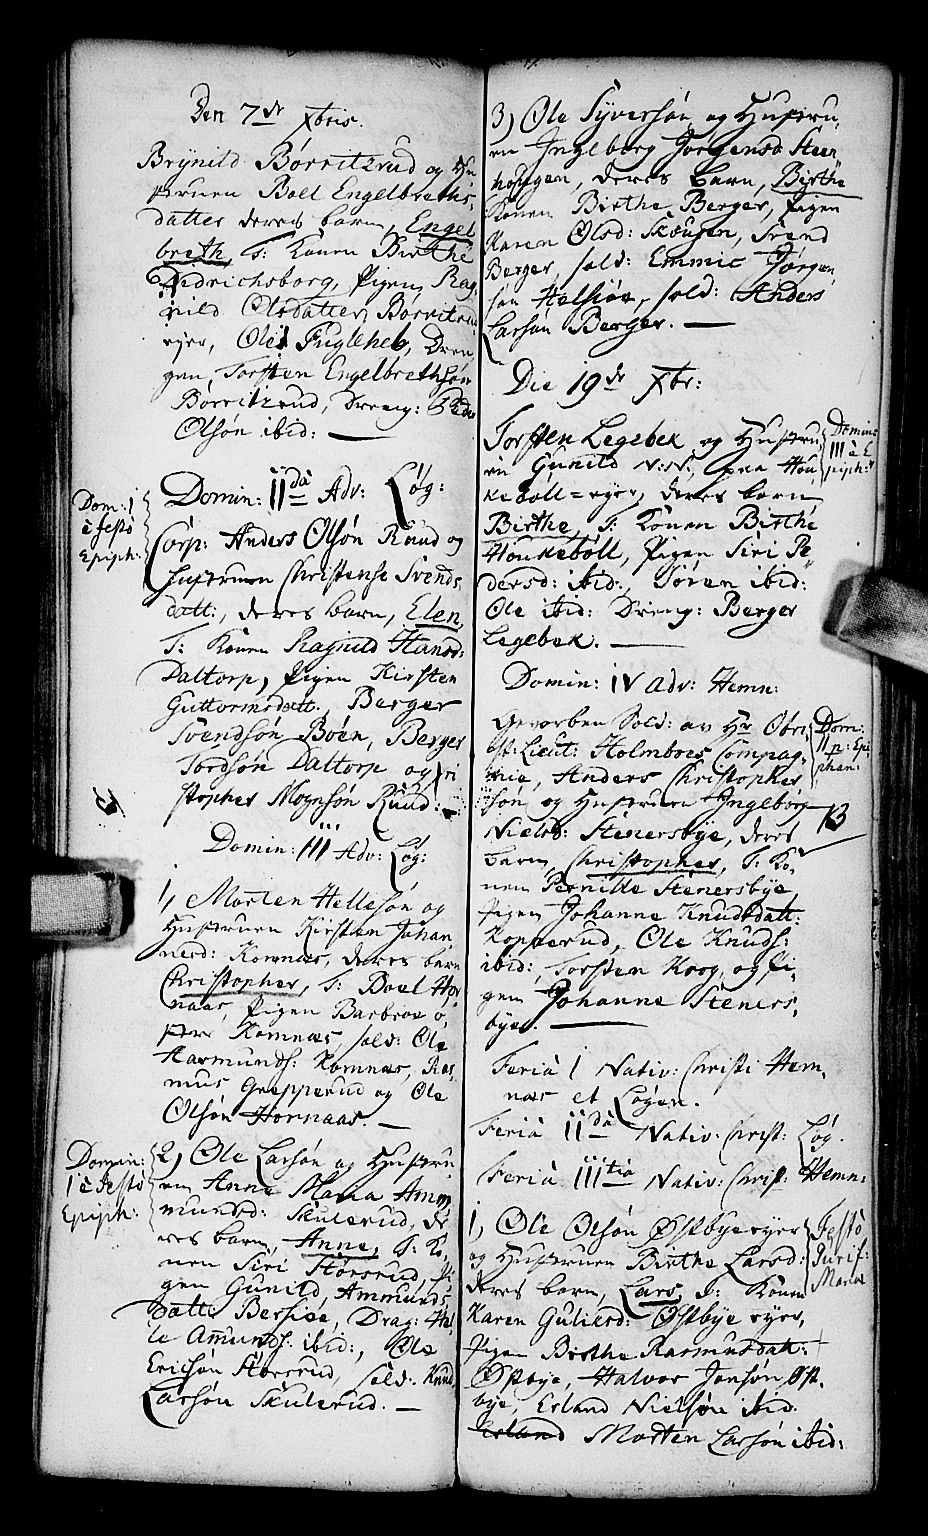 Den 7de Xbris.
Brynild Børritzrud og Hu
struen Boel Engelbreths
datter deres barn, Engel
breth, T: Konen Birthe
Didrichsborg, Pigen Rag
nild Olsdatter Børritzru
eyer, Ole Fugleheb, Dren
gen, Torsten Engelbrethsøn
Børritzrud, Dreng: Peder
Olsøn ibid: —
Domin: IIdâ Adv: Løg:
Dom: 1
à festo
Epiph:
Corp: Anders Olsøn Ruud og
Hustruen Christense Svends
datt:, deres barn, Elen,
T: Konen Ragnild Hansd:
Daltorp, Pigen Kirsten
Guttormsdatt:, Berger
Svendsøn Bøen, Berger
Tordsøn Daltorp og Cri
stopher Mognsøn Ruud: —
Domin: III Adv: Løg:
1, Morten Hellesøn og
Hustruen Kirsten Johan
nesd: Komnæs, deres barn
Christopher, T: Boel Hor
naas, Pigen Barbroe ø
stre Komnæs, sold: Ole
Rasmunds: Komnæs, Ras,
mus Grepperud og Ole
Olsøn Hornaas. —
Domin:
1 à festo
Epiph:
2, Ole Larsøn og Hustru
en Anne Maria Amm
mundsd: Skulerud, de
res barn, Anne, T: Ko,
nen Siri Størsrud, Pi
gen Gunild, Ammunds
datt: Bersiøe, Drag: Hel
le Amunds: ibid:, Ole
Ericsøn Størsrud, sold: Knud
Larsøn Skulerud. —
3, Ole Syversøn og Hustru,
en Ingeborg Jørgensd Steen
houfgen, deres barn, Birthe
Konen Birthe Berger, Pigen
Karen Olsd: Skougen, Svend
Berger, sold: Emmic Jørgen
søn Halsiøe, sold: Anders
Larsøn Berger. —
Die 19de Xbr:
Torsten Legebek og Hustru
en Gunild N: N:, paa Hou,
kebøll=eyer, deres barn
Birthe, T: Konen Birthe
Houkebøll, Pigen Siri Pe
dersd: ibid:, Søren ibid:
Ole ibid: Dreng: Berger
Legebek. —
Domin:
III à E
piph:
Domin: IV Adv: Hemn:
Gevorben Sold: av Hr Obri
st: Lieut: Holmboes Compag,
nie, Anders Christopher
søn og Hustruen Ingebørg
Nielsd: Stenersbye, deres
barn, Christopher, T: Ko,
nen Pernille Stenersbye,
Pigen Johanne Knudsdatt:
Kopperud, Ole Knuds:
ibid:, Torsten Koog, og Pi,
gen Johanne Steners,
bye. —
Dom:
II p: Epi
phan:
13
Feria I Nativ: Christi Hem,
næs et Løgen.
Feria IIdâ Nativ: Christ: Løg.
Feria IIItia Nativ: Christ: Hemn:
1, Ole Olsøn Østbye eyer
og Hustruen Birthe Larsd:
deres barn, Lars, T: Konen
Karen Guliersd: Østbye eyer,
Pigen Birthe Rasmusdatt:
Østbye, Halvor Jonsøn Øst,
bye, Erland Nielsøn ibid:
Erland Morten Larsøn ibid:
Festo
Purif:
Mariæ